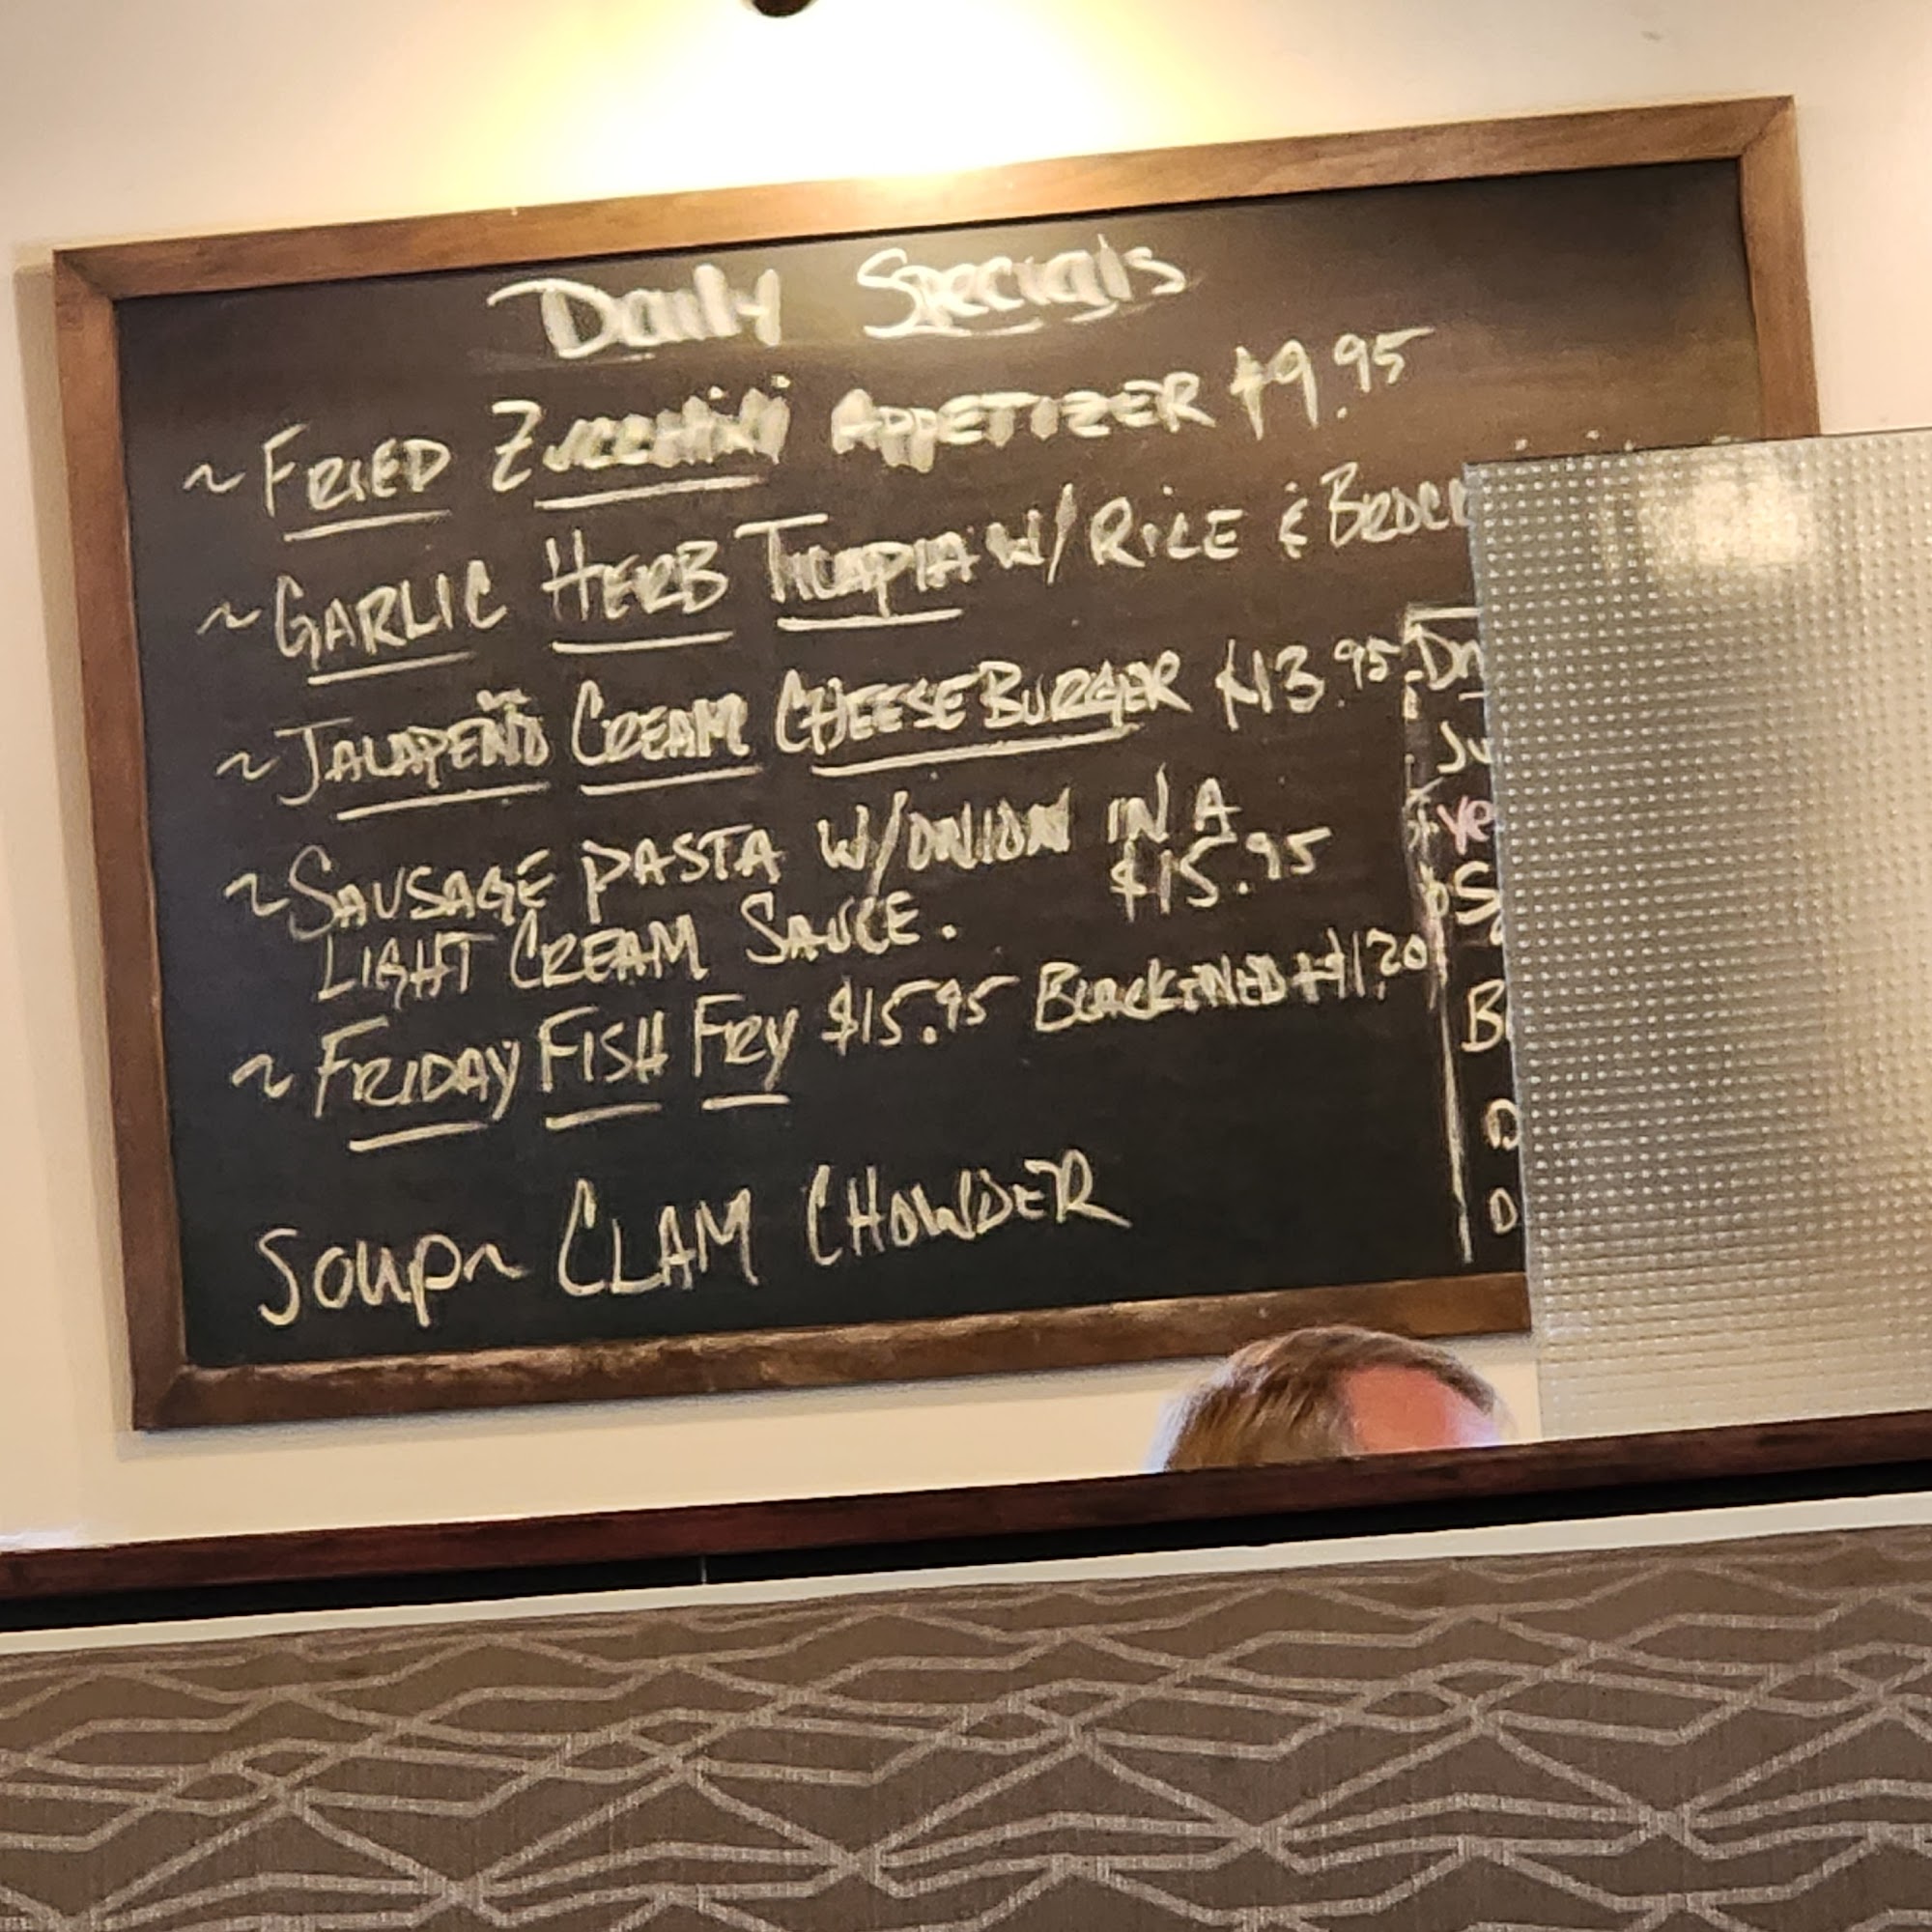 Daily Specials
~ FRIED ZUCCHINI APPETIZER $9.95
~ GARLIC HERB TILAPIA W/ RICE & BROCC
~ JALAPEÑO CREAM CHEESE BURGER $13.95
~ SAUSAGE PASTA W/ONION IN A
LIGHT CREAM SAUCE. $15.95
~ FRIDAY FISH FRY $15.95 BLACKENED +$1.20
Soup~ CLAM CHOWDER